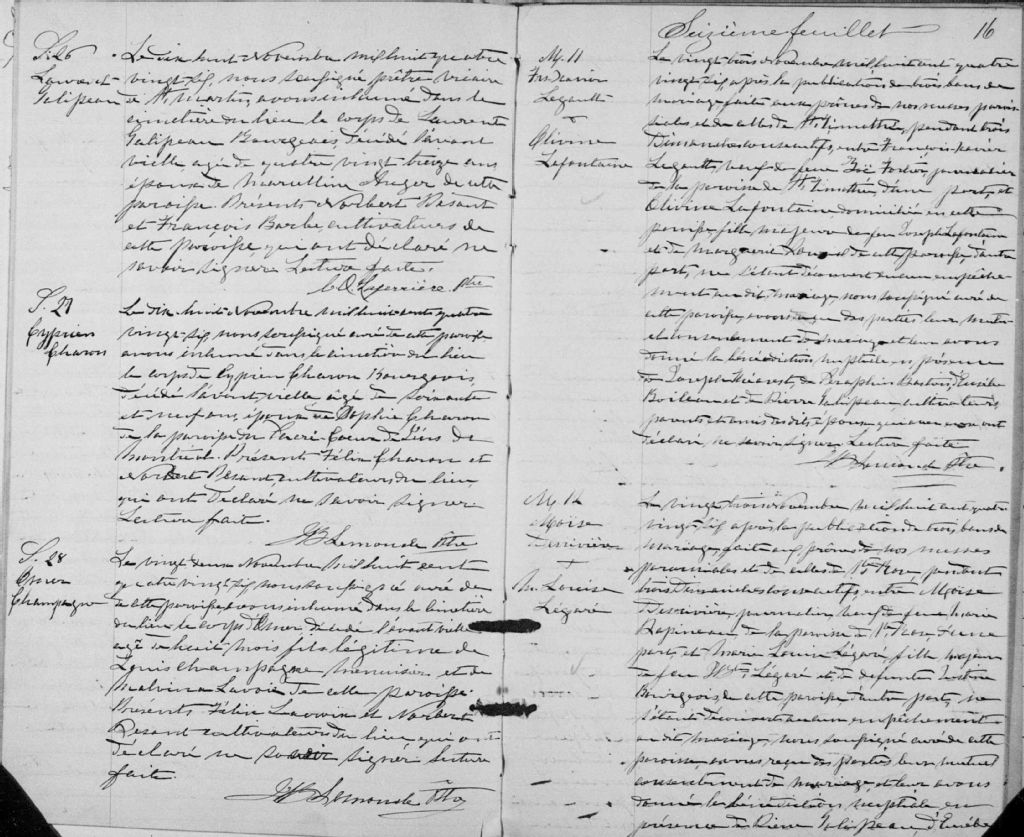 S. 26
Laurent
Galipeau
Le dix huit Novembre mil huit quatre
vingt-six, nous soussigné prêtre vicaire
de St Martin, avons inhumé dans le
cimetière du lieu le corps de Laurent
Galipeau Bourgeois, décédé l'avant
veille, agé de quatre vingt treize ans
époux de Marcelline Auger de cette
paroisse. Présents Norbert Présant
et François Barbe, cultivateurs de
cette paroisse, qui ont déclaré ne
savoir signer. Lecture faite.
Ptre
S. 27
Cyprien
Charon
Le dix-huit Novembre mil huit cents quatre
vingt-six, nous soussigné curé de cette paroisse
avons inhumé dans le cimetière du lieu
le corps de Cyprien Charon Bourgeois,
décédé l'avant veille, agé de soixante
et neuf ans, époux de Sophie Charon
de la paroisse du Sacré Coeur de Jésus de
Montréal. Présents Félix Charon et
Norbert Présant, cultivateurs du lieu,
qui ont déclaré ne savoir signer
Lecture faite.
Lemonde Ptre
S. 28
Omer
Champagne
Le vingt deux Novembre mil huit cent
quatre vingt-six, nous soussigné curé de
cette paroisse, avons inhumé dans le cimetière
du lieu le corps d'Omer décédé l'avant veille
agé de huit mois fils légitime de
Louis Champagne menuisier et de
Malvina Lavoie de cette paroisse.
Présents Félix et Norbert
Présant cultivateurs du lieu qui ont
déclaré ne savoir signer Lecture
faite
Lemonde Ptre
Seizième feuillet 16
M. 11
Frs Xavier
Legault
&
Olivine
Lafontaine
Le vingt trois novembre mil huit cent quatre
vingt-six, après la publication de trois bans de
mariage faite aux prônes de nos messes parois-
siales et de celles de St Timothée, pendant trois
Dimanches consécutifs, entre François-Xavier
Legault, veuf de feue Zoë journalier
de la paroisse de St Timothée d'une part, et
Olivine Lafontaine domiciliée en cette
paroisse, fille majeure de feu Joseph Lafontaine
et de Marguerite de cette paroisse, d'autre
part, ne s'étant découvert aucun empêche-
ment au dit mariage, nous soussigné curé de
cette paroisse, avons reçu des parties leur mutu-
el consentement de mariage et leur avons
donné la bénédiction nuptiale en présence
de Joseph de Séraphin d'Eusèbe
Boileau et de Pierre Galipeau, cultivateurs
parents et amis des dits époux, qui ont
déclaré ne savoir signer. Lecture faite
Lemonde Ptre.
M. 12
Moïse
Desrivières
&
M. Louise
Légaré
Le vingt trois novembre mil huit cent quatre
vingt-six après la publication de trois bans de
mariage, faite aux prônes de nos messes
paroissiales et de celles de Ste Rose pendant
trois Dimanches consécutifs, entre Moïse
Desrivières, journalier, veuf de feue Marie
Papineau de la paroisse de Ste Rose, d'une
part, et Marie Louise Légaré fille majeure
de feu Légaré et de défunte
Bourgeois de cette paroisse d'autre part, ne
s'étant découvert aucun empêchement
au dit mariage, nous soussigné curé de cette
paroisse avons reçu des parties leur mutuel
consentement de mariage, et leur avons
donné la bénédiction nuptiale en
présence de Pierre Galipeau d'Eusèbe